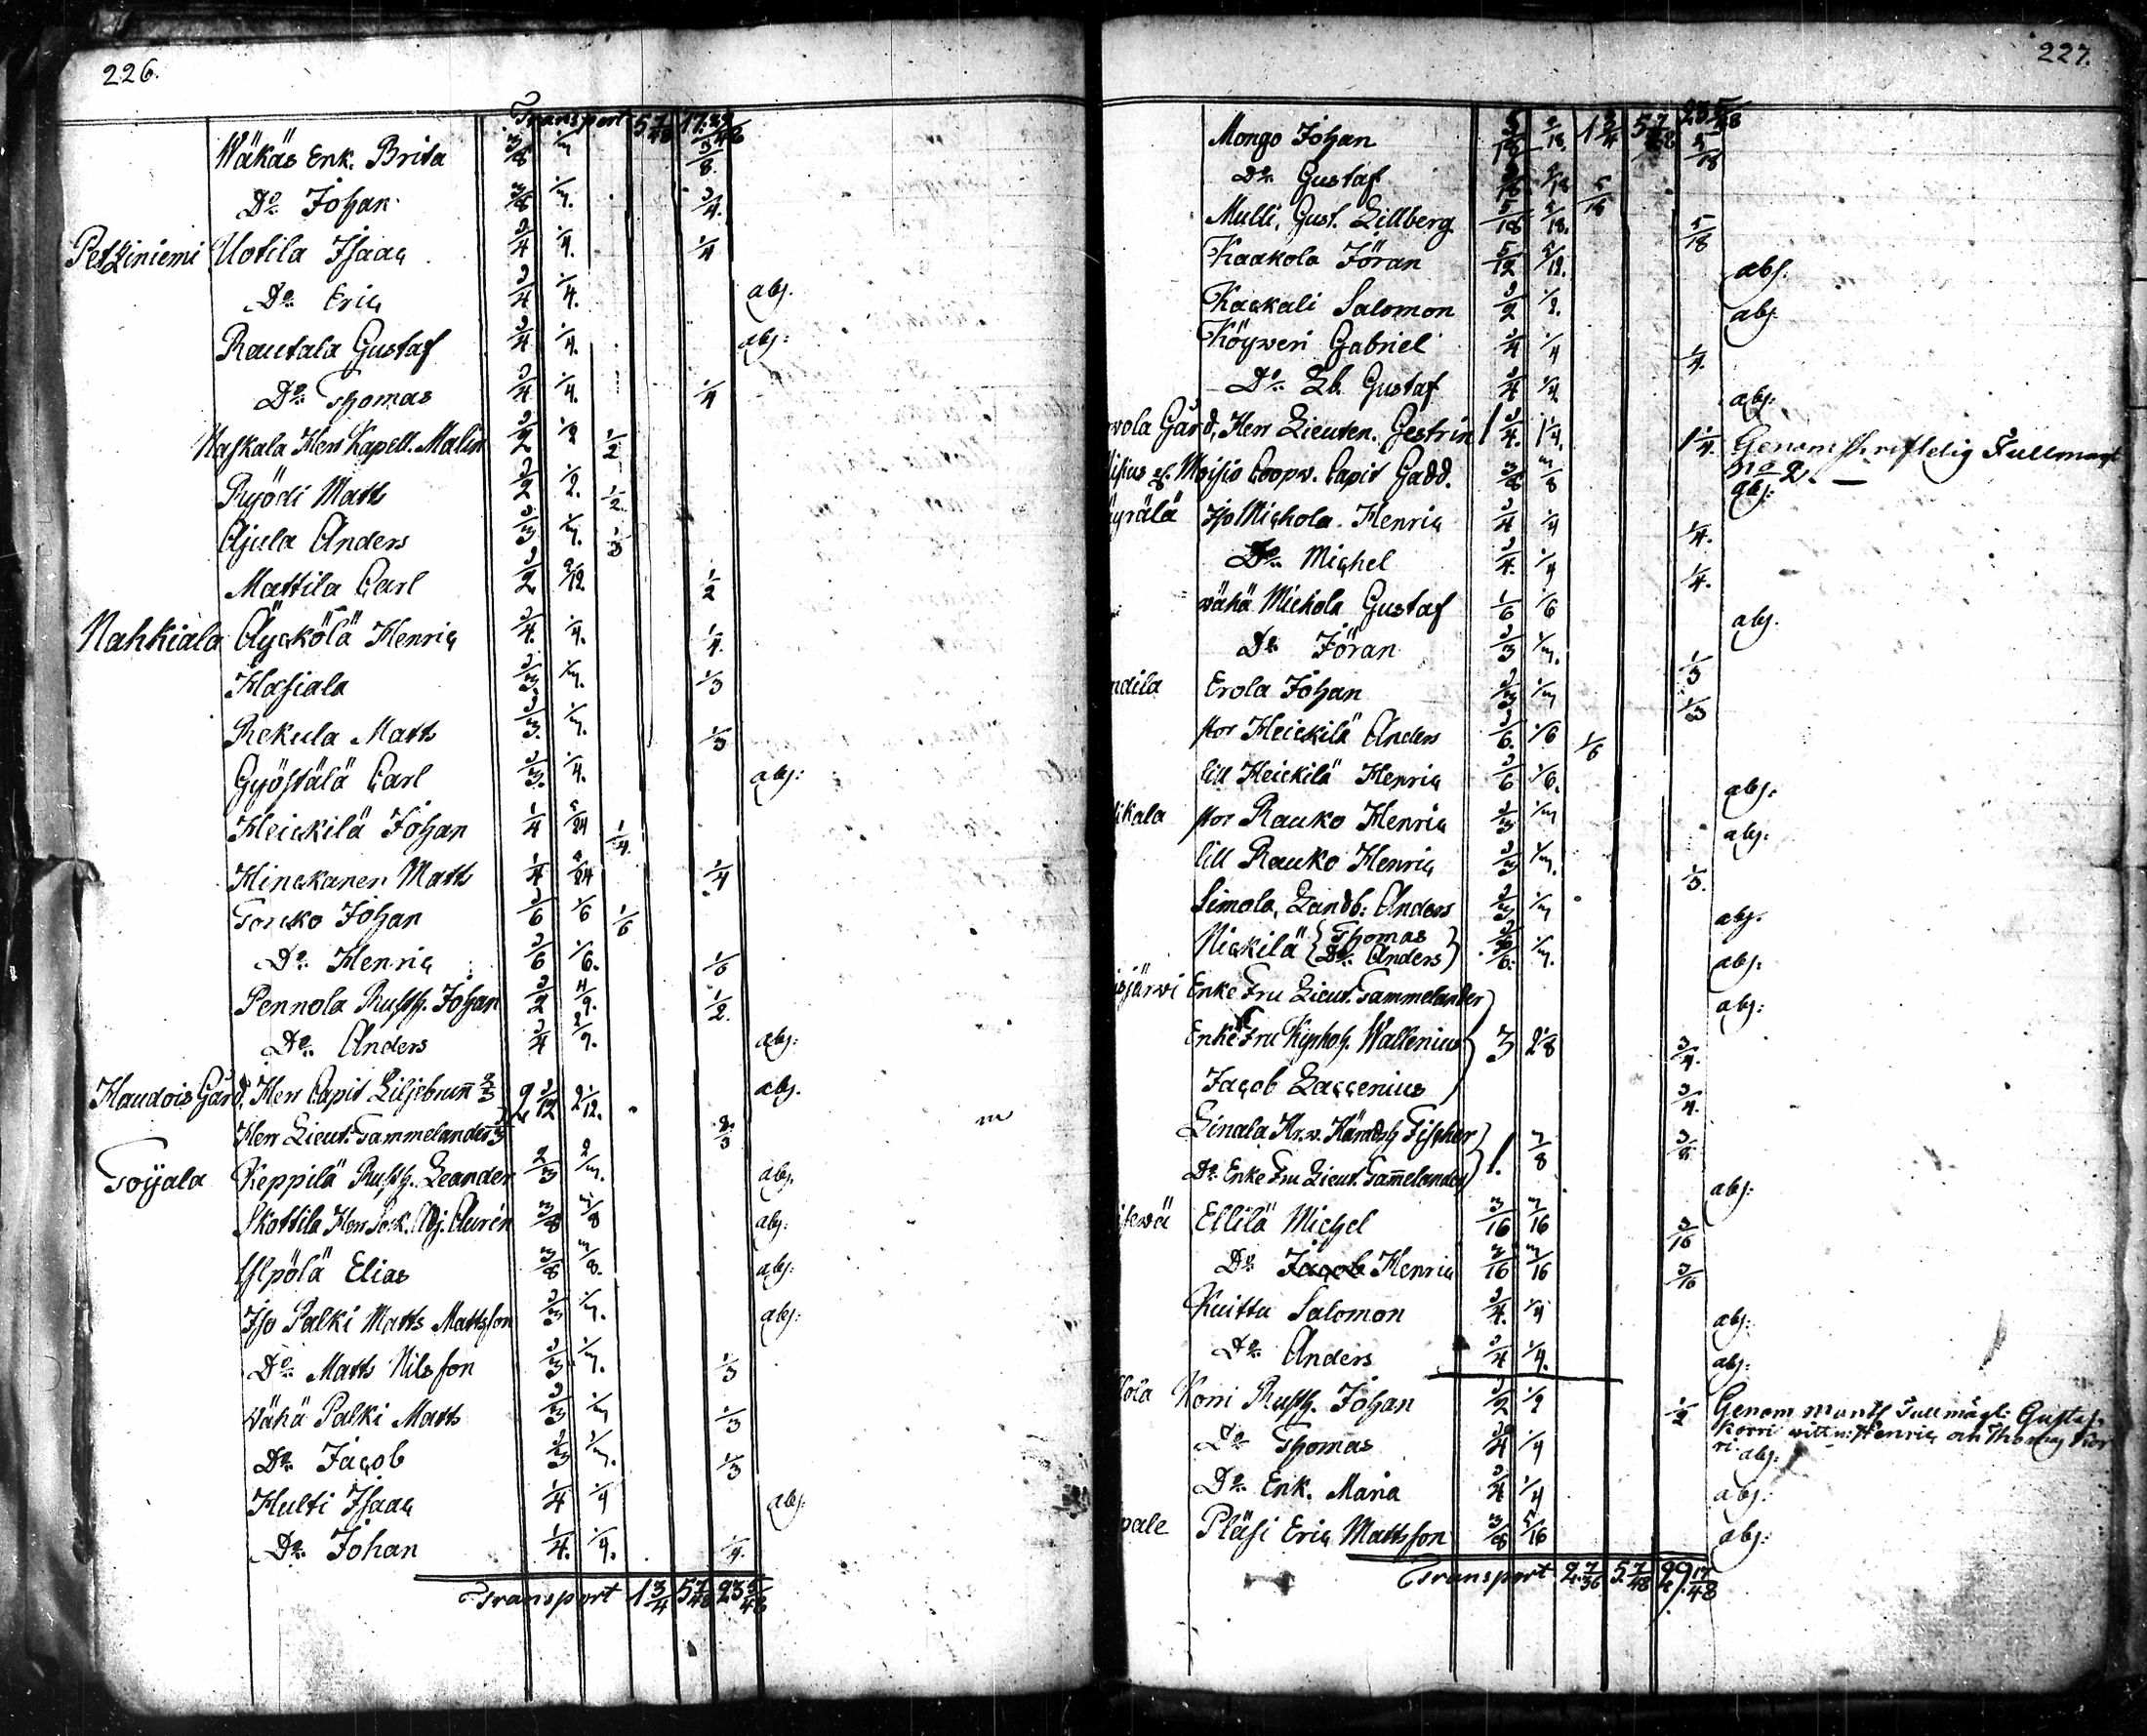 226.
Transport 5 7/48 17.
Wäkäs Enk. Brita 3/8 1/3 3/8.
Do. Johan 3/8 1/3. 3/4.
Petziniemi Uotila Isaac 3/4 1/4. 1/4
Do. Eric 3/4 1/4. abs.
Rautala Gustaf 3/4 1/4. abs:
Do. Thomas 3/4 1/4. 1/4
Naskala Herr Kapell. Malin 1/2 1/2 1/2
Ryödi Matts 1/2 1/2. 1/2
Ajula Anders 1/3 1/3. 1/3
Mattila Carl 1/2 5/12 1/2
Nahkiala Äyckölä Henric 1/4. 1/4. 1/4.
Hasiala 1/3 1/3. 1/3
Rekula Matts 1/3. 1/3. 1/3
Gyöstälä Carl 1/3. 1/4. abs:
Heickilä Johan 1/4 5/24 1/4.
Hinckanen Matts 1/4 5/24 1/4
Torcko Johan 1/6 1/6 1/6
Do. Henric 1/6 1/6. 1/6
Pennola Rusth. Johan 1/2 4/9. 1/2.
Do. Anders 1/4 2/9. abs:
Haudois Gård, Herr Capit Liljebrunn 2/3 2 1/12 2 1/12. abs.
Herr Lieut: Tammelander 1/3 2/3
Toijala Keppilä Rusth. Leander 2/3 2/3. abs.
Skottila Herr Sock. Adj. Aurén 3/8 3/8 abs:
Ylpölä Elias 3/8 3/8. abs:
Iso Palki Matts Mattsson 1/3 1/3. abs:
Do. Matts Nilsson 1/3 1/3. 1/3
Wähä Palki Matts 1/3 1/3 1/3
Do. Jacob 1/3 1/3. 1/3
Hulti Isaac 1/4 1/4 abs:
Do. Johan 1/4. 1/4. 1/4.
Transport 1 3/4 5 7/48 23 5/48
227.
1 3/4 5 7/48 23 5/48
Mongo Johan 5/18 5/18. 5/18
Do. Gustaf 5/18 5/18 5/18
Mulli, Gust. Lillberg 5/18 5/18. 5/18
Kaakola Jöran 5/12 5/12. abs.
Kackali Salomon 1/2 1/2. abs.
Köyweri Gabriel 1/4 1/4 1/4.
Do. Lb. Gustaf 1/4 1/4 abs.
wola Gård, Herr Lieuten. Gestrin 1 1/4. 1 1/4. 1 1/4. Genom skriftelig Fullmagt
No 2. —
Moisio Coopv. Capit Gadd. 3/8 3/8 abs:
yrälä Iso Michola Henric 1/4 1/4 1/4.
Do. Michel 1/4. 1/4 1/4.
wähä Michola Gustaf 1/6 1/6 abs.
Do. Jöran 1/3 1/3. 1/3
ndila Erola Johan 1/3 1/3 1/3
stor Heickilä Anders 1/6. 1/6 1/6
lill Heickilä Henric 1/6 1/6. abs.
ikala stor Rauko Henric 1/3 1/3 abs:
lill Rauko Henric 1/3 1/3. 1/3.
Simola, Landb: Anders 1/3 1/3 abs.
Nickilä { Thomas
Do. Anders } 1/6. 1/3. abs:
järwi Enke Fru Lieut. Tammelander abs:
Enke Fru Kyrkoh. Wallenius 3 2 1/8 3/4.
Jacob Laccenius 3/4.
Linala Hr. v. Häradsh Fischer 1. 7/8 3/8
Do. Enke Fru Lieut. Tammelander abs:
Ellilä Michel 3/16 3/16 3/16
Do. Jacob Henric 3/16 3/16 3/16
Kuittu Salomon 1/4. 1/4 abs:
Do. Anders 1/4 1/4. abs:
Korri Rusth. Johan 1/2 1/2 1/2 Genom muntl Fullmägt: Gustaf
Korri wittn: Henric och Thomas Kor
Do. Thomas 1/4 1/4 ri abs:
Do. Enk. Maria 1/4 1/4 abs:
pale Pläsi Eric Mattsson 3/8 5/16 abs:
Transport 2 7/36 5 7/48 29 17/48